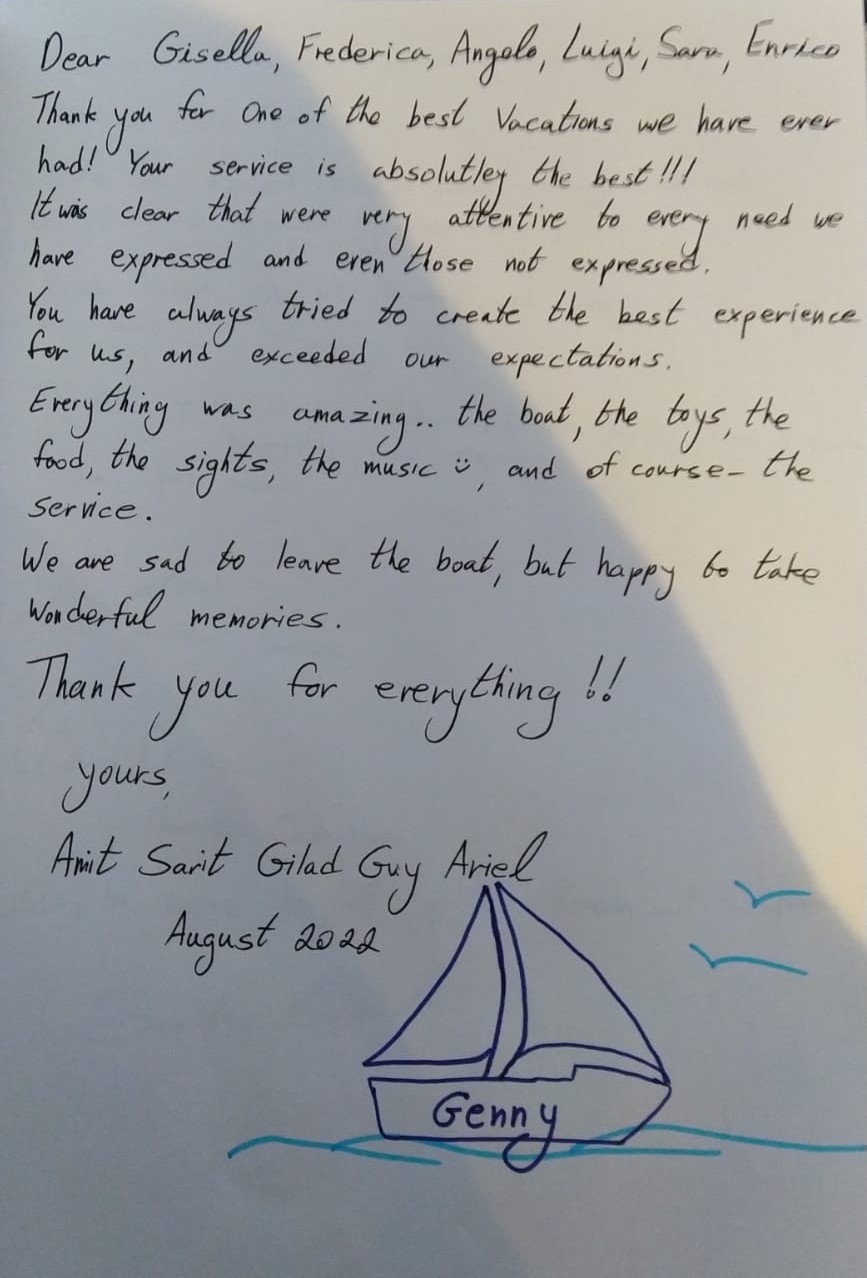 Dear Gisella, Frederica, Angelo, Luigi, Sara, Enrico
Thank you for One of the best Vacations we have ever
had! Your service is absolutley the best!!!
It was clear that were very attentive to every need we
have expressed and even those not expressed.
You have always tried to create the best experience
for us, and exceeded our expectations.
Everything was amazing.. the boat, the toys, the
food, the sights, the music ü, and of course- the
service.
We are sad to leave the boat, but happy to take
Wonderful memories.
Thank you for everything!!
yours,
Amit Sarit Gilad Guy Ariel
August 2022
Genny